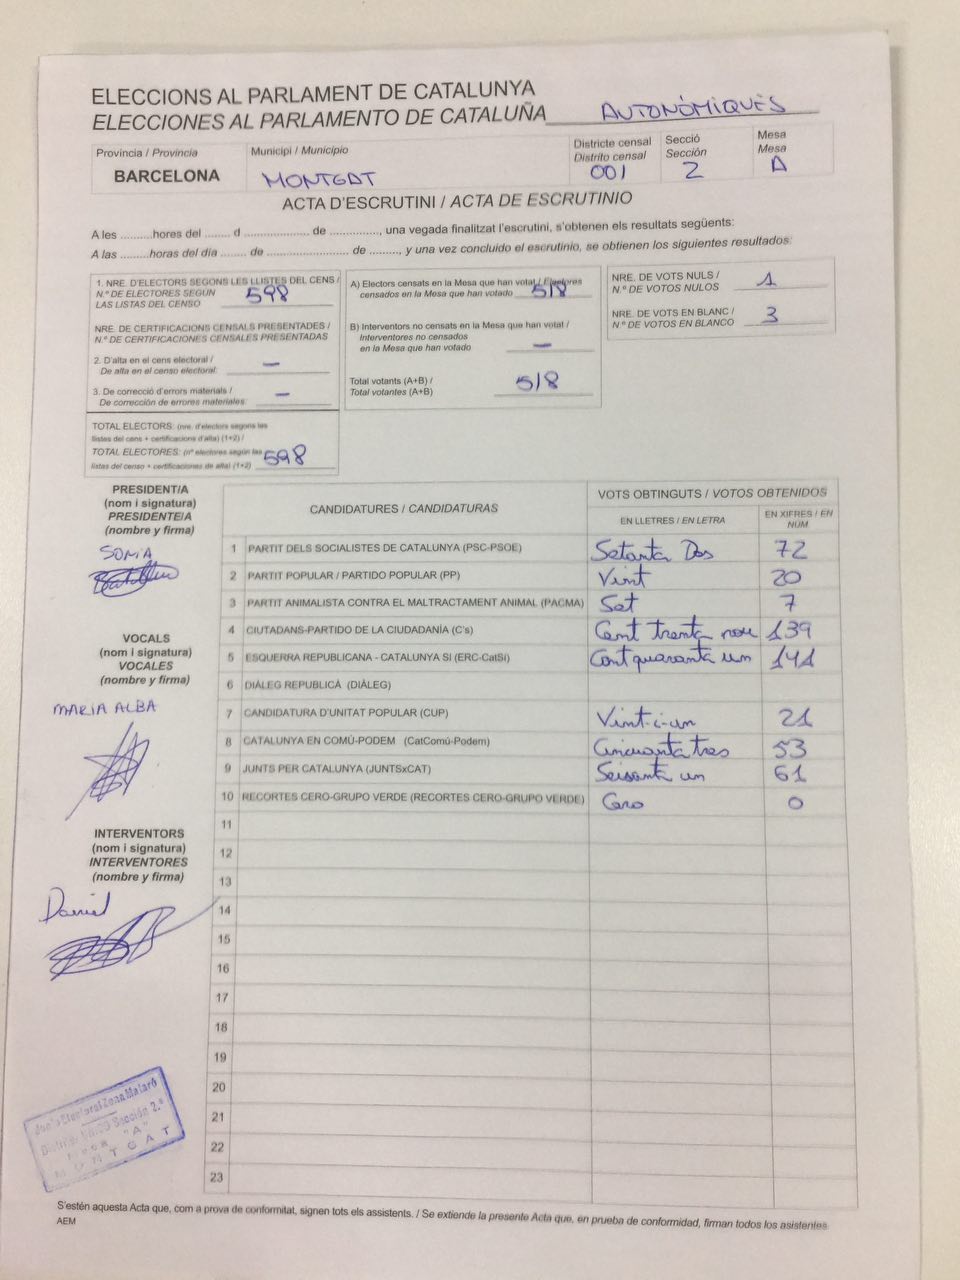 ELECCIONS AL PARLAMENT DE CATALUNYA
ELECCIONES AL PARLAMENTO DE CATALUÑA AUTONÒMIQUES
Provincia / Provincia
BARCELONA
Municipi / Municipio
MONTGAT
Districte censal
Distrito censal
001
Secció
Sección
2
Mesa
Mesa
A
ACTA D'ESCRUTINI / ACTA DE ESCRUTINIO
A les ..........hores del ........ d ...................... de ..............., una vegada finalitzat l'escrutini, s'obtenen els resultats següents:
A las .........horas del día ........ de .......................... de .........., y una vez concluido el escrutinio, se obtienen los siguientes resultados:
1. NRE. D'ELECTORS SEGONS LES LLISTES DEL CENS /
N.º DE ELECTORES SEGÚN
LAS LISTAS DEL CENSO 598
NRE. DE CERTIFICACIONS CENSALS PRESENTADES /
N.º DE CERTIFICACIONES CENSALES PRESENTADAS
2. D'alta en el cens electoral /
De alta en el censo electoral: —
3. De correcció d'errors materials /
De corrección de errores materiales: —
TOTAL ELECTORS: (nre. d'electors segons les
llistes del cens + certificacions d'alta) (1+2) /
TOTAL ELECTORES: (nº electores según las
listas del censo + certificaciones de alta) (1+2) 598
A) Electors censats en la Mesa que han votat / Electores
censados en la Mesa que han votado 518
B) Interventors no censats en la Mesa que han votat /
Interventores no censados
en la Mesa que han votado —
Total votants (A+B) /
Total votantes (A+B) 518
NRE. DE VOTS NULS /
N.º DE VOTOS NULOS 1
NRE. DE VOTS EN BLANC /
N.º DE VOTOS EN BLANCO 3
PRESIDENT/A
(nom i signatura)
PRESIDENTE/A
(nombre y firma)
SONIA
VOCALS
(nom i signatura)
VOCALES
(nombre y firma)
MARIA ALBA
INTERVENTORS
(nom i signatura)
INTERVENTORES
(nombre y firma)
Daniel
CANDIDATURES / CANDIDATURAS
VOTS OBTINGUTS / VOTOS OBTENIDOS
EN LLETRES / EN LETRA
EN XIFRES / EN
NÚM.
1 PARTIT DELS SOCIALISTES DE CATALUNYA (PSC-PSOE) Setanta Dos 72
2 PARTIT POPULAR / PARTIDO POPULAR (PP) Vint 20
3 PARTIT ANIMALISTA CONTRA EL MALTRACTAMENT ANIMAL (PACMA) Set 7
4 CIUTADANS-PARTIDO DE LA CIUDADANÍA (C's) Cent trenta nou 139
5 ESQUERRA REPUBLICANA - CATALUNYA SÍ (ERC-CatSí) Cent quaranta un 141
6 DIÀLEG REPUBLICÀ (DIÀLEG)
7 CANDIDATURA D'UNITAT POPULAR (CUP) Vint-i-un 21
8 CATALUNYA EN COMÚ-PODEM (CatComú-Podem) Cincuanta tres 53
9 JUNTS PER CATALUNYA (JUNTSxCAT) Seisanta un 61
10 RECORTES CERO-GRUPO VERDE (RECORTES CERO-GRUPO VERDE) Cero 0
11
12
13
14
15
16
17
18
19
20
21
22
23
Junta Electoral Zona Mataró
Sección 2.ª
Mesa "A"
MONTGAT
S'estén aquesta Acta que, com a prova de conformitat, signen tots els assistents. / Se extiende la presente Acta que, en prueba de conformidad, firman todos los asistentes.
AEM